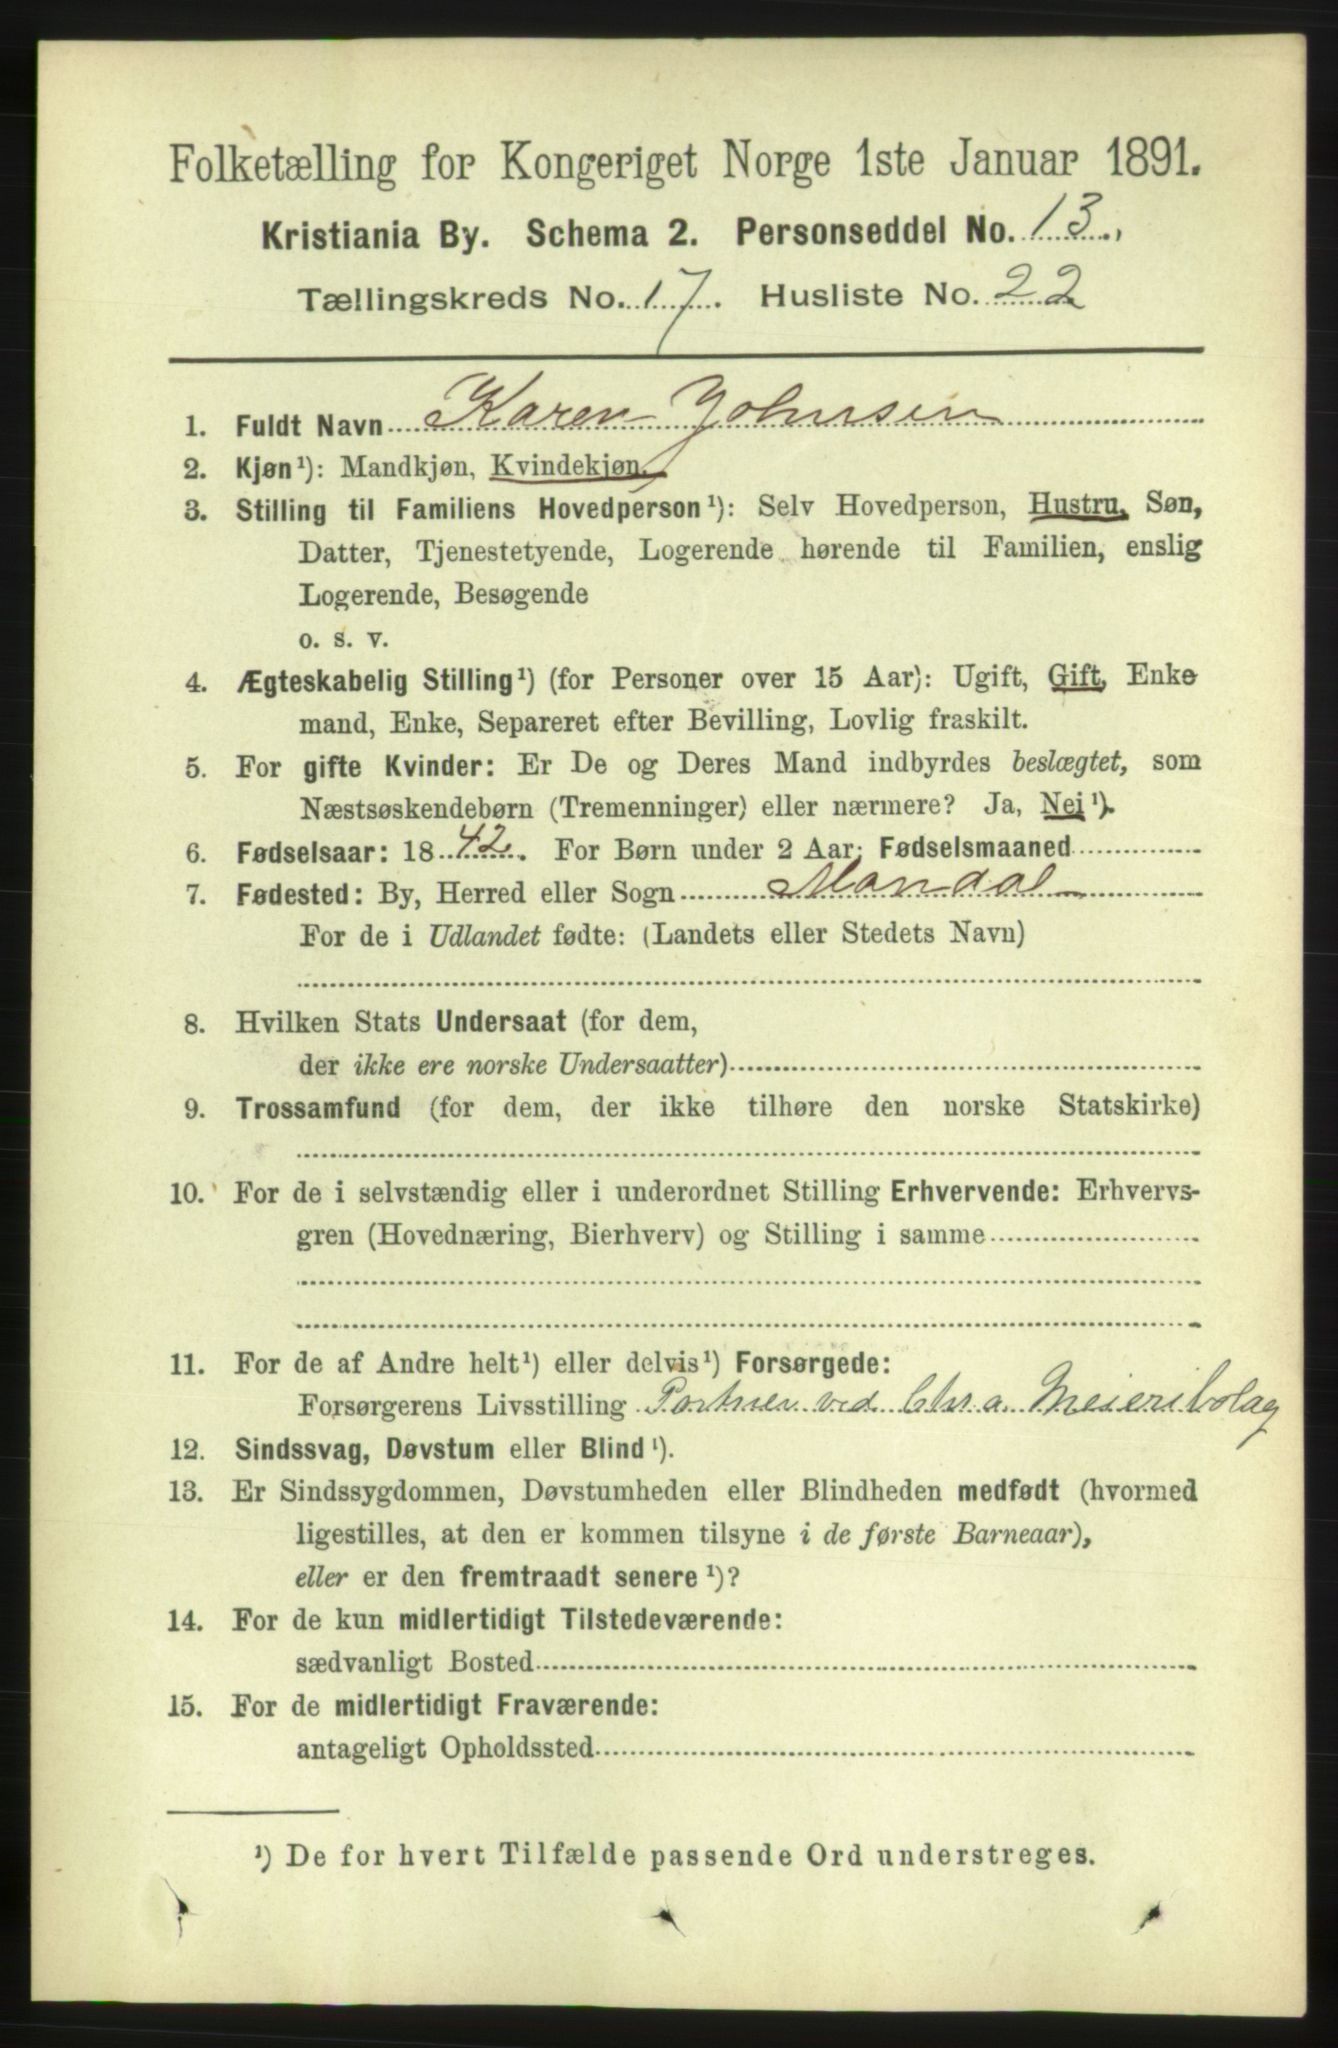 Folketælling for Kongeriget Norge 1ste Januar 1891.
Kristiania By. Schema 2. Personseddel No. 13.
Tællingskreds No. 17. Husliste No. 22
1. Fuldt Navn Karen Johnsen
2. Kjøn¹): Mandkjøn, Kvindekjøn.
3. Stilling til Familiens Hovedperson¹): Selv Hovedperson, Hustru, Søn,
Datter, Tjenestetyende, Logerende hørende til Familien, enslig
Logerende, Besøgende
o. s. v.
4. Ægteskabelig Stilling¹) (for Personer over 15 Aar): Ugift, Gift, Enke
mand, Enke, Separeret efter Bevilling, Lovlig fraskilt.
5. For gifte Kvinder: Er De og Deres Mand indbyrdes beslægtet, som
Næstsøskendebørn (Tremenninger) eller nærmere? Ja, Nei¹).
6. Fødselsaar: 1842. For Børn under 2 Aar: Fødselsmaaned
7. Fødested: By, Herred eller Sogn Mandal
For de i Udlandet fødte: (Landets eller Stedets Navn)
8. Hvilken Stats Undersaat (for dem,
der ikke ere norske Undersaatter)
9. Trossamfund (for dem, der ikke tilhøre den norske Statskirke)
10. For de i selvstændig eller i underordnet Stilling Erhvervende: Erhvervs-
gren (Hovednæring, Bierhverv) og Stilling i samme
11. For de af Andre helt¹) eller delvis¹) Forsørgede:
Forsørgerens Livsstilling Portner ved Chr.a Meieribolag
12. Sindssvag, Døvstum eller Blind¹).
13. Er Sindssygdommen, Døvstumheden eller Blindheden medfødt (hvormed
ligestilles, at den er kommen tilsyne i de første Barneaar),
eller er den fremtraadt senere¹)?
14. For de kun midlertidigt Tilstedeværende:
sædvanligt Bosted
15. For de midlertidigt Fraværende:
antageligt Opholdssted
¹) De for hvert Tilfælde passende Ord understreges.